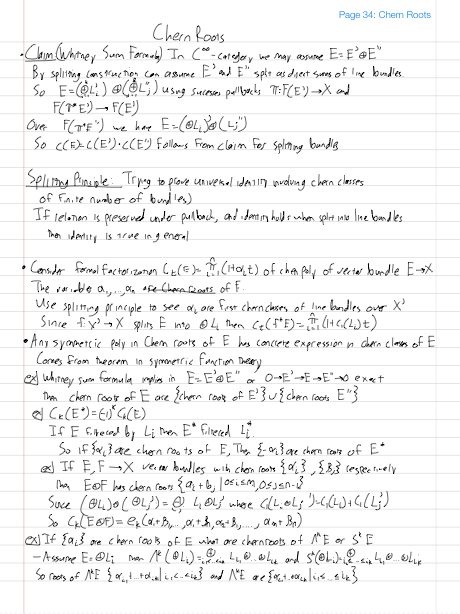 Page 34: Chern Roots
Chern Roots
• Claim (Whitney Sum Formula) In C^∞-category we may assume E = E' ⊕ E''
By splitting construction can assume E' and E'' split as direct sums of line bundles.
So E = (⊕L_i') ⊕ (⊕L_j'') using success pullbacks π: F(E') → X and
F(π*E'') → F(E')
Over F(π*E'') we have E = (⊕L_i') ⊕ (L_j'')
So c(E) = c(E') · c(E'') follows from claim for splitting bundles
Splitting Principle: Trying to prove universal identity involving chern classes
of finite number of bundles)
If relation is preserved under pullback, and identity holds when split into line bundles
then identity is true in general
• Consider formal factorization C_t(E) = ∏_{i=1}^n (1+α_i t) of chern poly of vector bundle E → X
The variables α_1, ..., α_n are Chern roots of E.
Use splitting principle to see α_i are first chern classes of line bundles over X'
Since f: X' → X splits E into ⊕L_i then C_t(f*E) = ∏_{i=1}^n (1 + c_1(L_i) t)
• Any symmetric poly in Chern roots of E has concrete expression in chern classes of E
Comes from theorem in symmetric function theory
ex) Whitney sum formula implies in E = E' ⊕ E'' or 0 → E' → E → E'' → 0 exact
then chern roots of E are {chern roots of E'} ∪ {chern roots E''}
ex) C_k(E*) = (-1)^k C_k(E)
If E filtered by L_i then E* filtered L_i*
So if {α_i} are chern roots of E, Then {-α_i} are chern roots of E*
ex) If E, F → X vector bundles with chern roots {α_i}, {β_j} respectively
then E⊗F has chern roots {α_i + b_j | 0≤i≤m, 0≤j≤n-1}
Since (⊕L_i) ⊗ (⊕L_j') = ⊕ L_i ⊗ L_j' where C_1(L_i ⊗ L_j') = C_1(L_i) + C_1(L_j')
So C_k(E⊗F) = e_k(α_1+β_1, ..., α_1+β_n, α_2+β_1, ..., α_m+β_n)
ex) If {α_i} are chern roots of E what are chern roots of Λ^k E or S^k E
- Assume E = ⊕L_i then Λ^k(⊕L_i) = ⊕_{i_1<...<i_k} L_{i_1} ⊗...⊗ L_{i_k} and S^k(⊕L_i) = ⊕_{i_1≤...≤i_k} L_{i_1} ⊗...⊗ L_{i_k}
So roots of Λ^k E {α_{i_1}+...+α_{i_k} | i_1<...<i_k} and Λ^k E are {α_{i_1}+...+α_{i_k} | i_1≤...≤i_k}